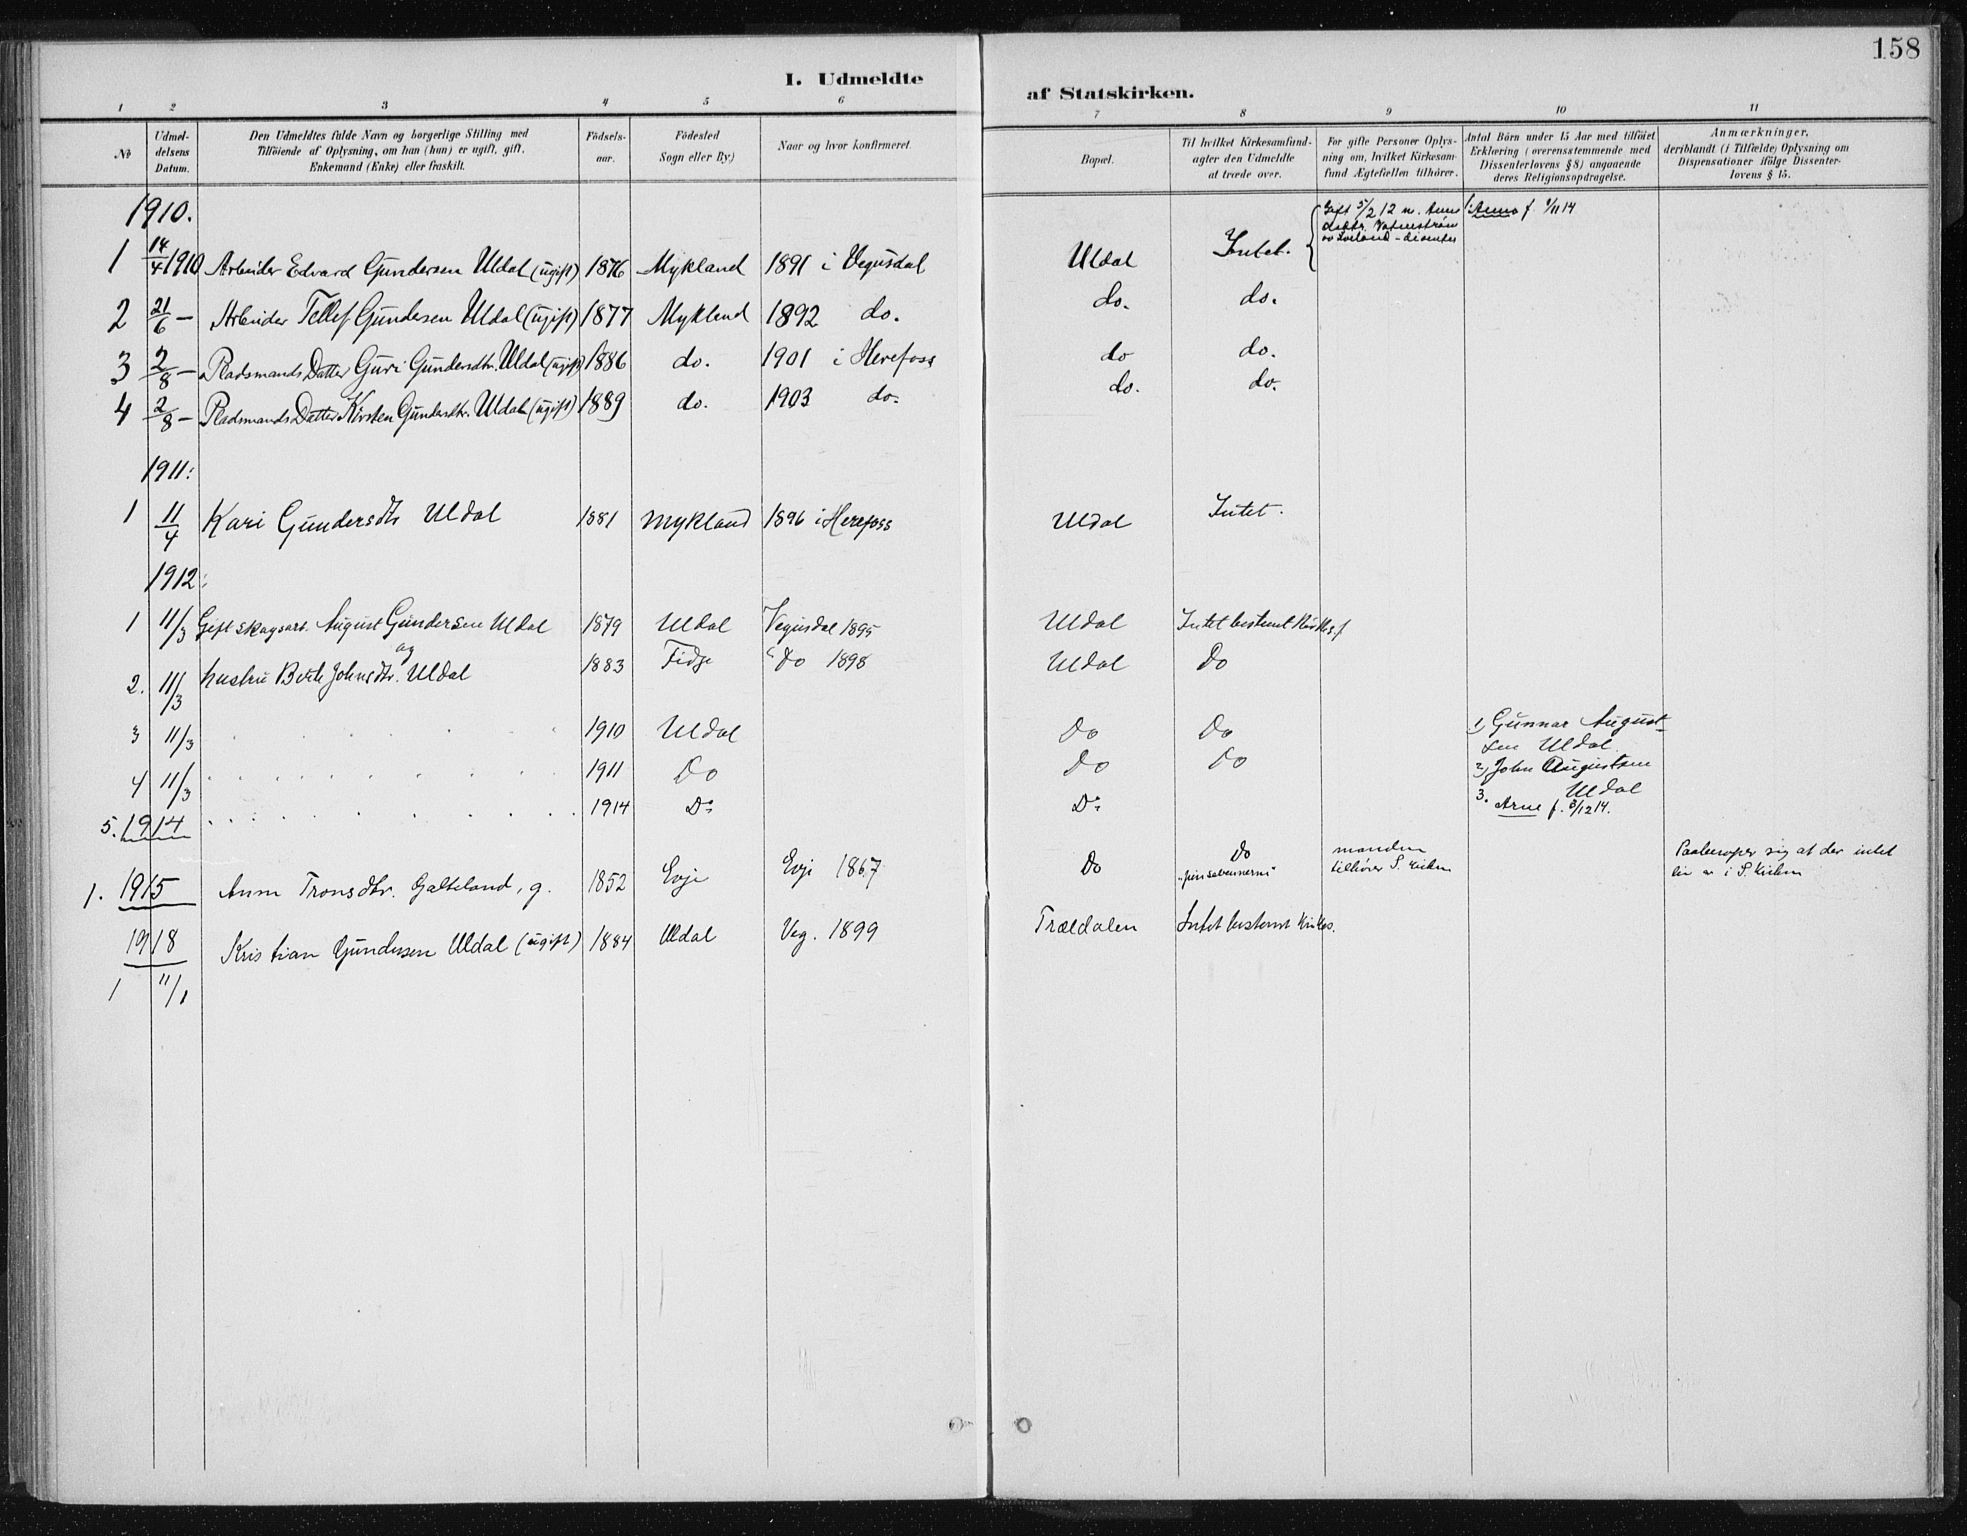 158
I. Udmeldte
af Statskirken.
1 2 3 4 5 6
7 8 9 10 11
No
Udmel-
delsens
Datum.
Den Udmeldtes fulde Navn og borgerlige Stilling med
Tilföiende af Oplysning, om han (hun) er ugift, gift,
Enkemand (Enke) eller fraskilt.
Födsels-
aar.
Födested
Sogn eller By)
Naar og hvor konfirmeret.
Bopæl.
Til hvilket Kirkesamfund-
agter den Udmeldte
at træde over.
For gifte Personer Oplys-
ning om, hvilket Kirkesam-
fund Ægtefællen tilhörer.
Antal Börn under 15 Aar med tilföiet
Erklæring (overensstemmende med
Dissenterlovens § 8) angaaende
deres Religionsopdragelse.
Anmærkninger,
deriblandt (i Tilfælde) Oplysning om
Dispensationer ifölge Dissenter-
lovens § 15.
1910.
Gift 5/2 12 m. Anne
Vatnström
Iveland - dissenter
f. 9/11 14
1 14/4 1910 Arbeider Edvard Gundersen Uldal (ugift) 1876 Mykland 1891 i Vegusdal Uldal Intet.
2 21/6 — Arbeider Tellef Gundersen Uldal (ugift) 1877 Mykland 1892 do. do. do.
3 2/8 — Pladsmands Datter Guri Gundersdtr. Uldal (ugift) 1886 do. 1901 i Herefoss do do.
4 2/8 — Pladsmands Datter Kirsten Gundersdtr. Uldal (ugift) 1889 do. 1903 do. do. do.
1911:
1 11/4 Kari Gundersdtr Uldal 1881 Mykland 1896 i Herefoss Uldal Intet.
1912:
1 11/3 Gift skogsarb. August Gundersen Uldal 1879 Uldal Vegusdal 1895 Uldal Intet bestemt Kirkes.f
og
2. 11/3 hustru Berte Johnsdtr. Uldal 1883 Fidje Do 1898 Uldal Do
3 11/3 . . . . . 1910 Uldal Do Do 1) Gunnar August-
sen Uldal.
4 11/3 . . . . . . . . 1911 Do Do Do 2) John Augustsen
Uldal
5. 1914 . . . . . . . . 1914 Do Do 3. Arne f. 3/12 14.
1. 1915 Anne Tronsdtr. Galteland, g. 1852 Evje Evje 1867 Do Do
"pinsevennerne"
manden
tilhører S. kirken
Paaberoper sig at der intet
liv er i S. kirken
1918 Kristian Gundersen Uldal (ugift) 1884 Uldal Veg. 1899 Trældalen Intet bestemt Kirkes.
1 11/1